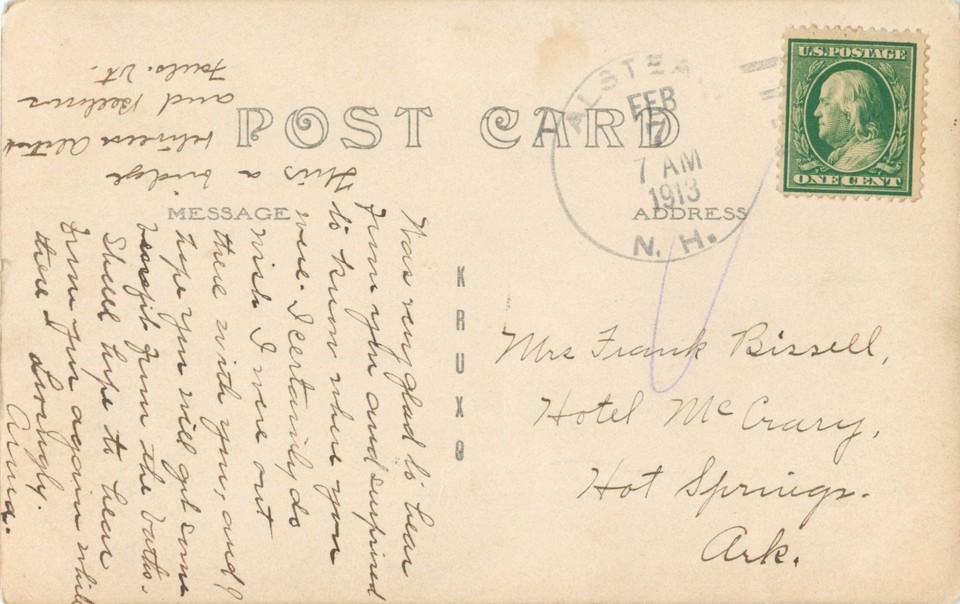 POST CARD
MESSAGE
ADDRESS
KRUXO
U.S. POSTAGE
ONE CENT
ALSTEA
FEB
7
7 AM
1913
N. H.
Mrs Frank Bissell,
Hotel McCrary,
Hot Springs.
Ark.
Was very glad to hear
from you and surprised
to know where you
were. I certainly do
wish I were out
there with you, and I
hope you will get some
benefit from the baths.
Shall hope to hear
from you again while
there. Lovingly.
Anna.
This a bridge
between Alstead
and Bellows
Falls. Vt.